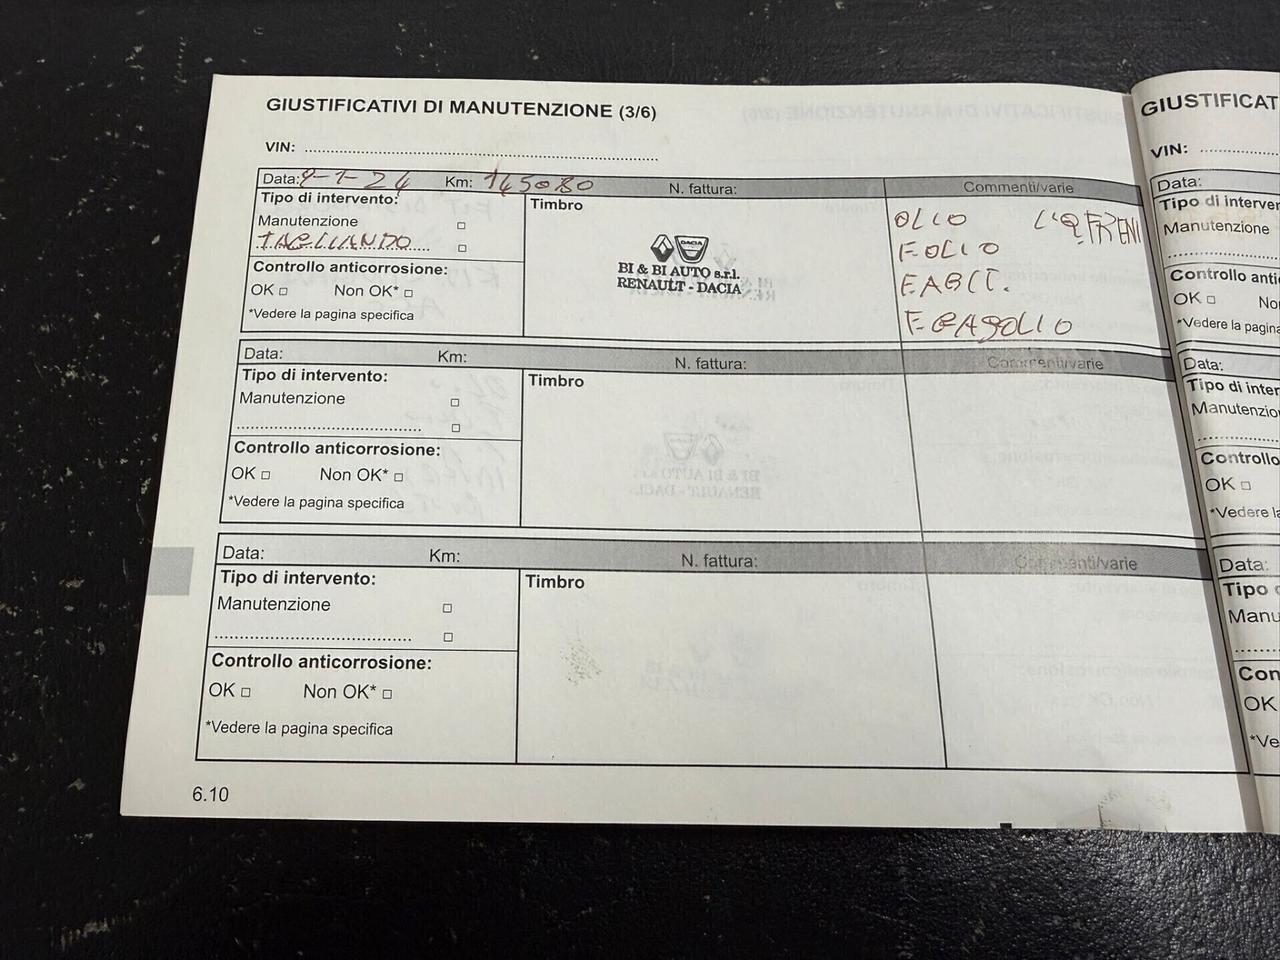 GIUSTIFICATIVI DI MANUTENZIONE (3/6)
VIN: ............
Data: 9-1-24 Km: 145080 N. fattura: Commenti/varie
Tipo di intervento:
Manutenzione □
TAGLIANDO □
Controllo anticorrosione:
OK □ Non OK* □
*Vedere la pagina specifica
Timbro
DACIA
BI & BI AUTO s.r.l.
RENAULT - DACIA
OLIO L'Q FRENI
F. OLIO
F. ABIT.
F. GASOLIO
Data: Km: N. fattura: Commenti/varie
Tipo di intervento:
Manutenzione □
............ □
Controllo anticorrosione:
OK □ Non OK* □
*Vedere la pagina specifica
Timbro
Data: Km: N. fattura: Commenti/varie
Tipo di intervento:
Manutenzione □
............ □
Controllo anticorrosione:
OK □ Non OK* □
*Vedere la pagina specifica
Timbro
6.10
GIUSTIFICAT
VIN: ............
Data:
Tipo di interver
Manutenzione
Controllo anti
OK □ No
*Vedere la pagina
Data:
Tipo di inter
Manutenzio
Controllo
OK □
*Vedere la
Data:
Tipo
Manu
Con
OK
*Ve